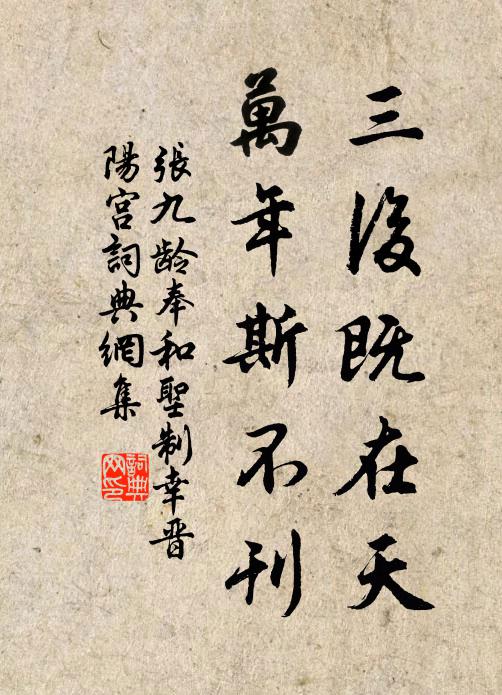 三後既在天
萬年斯不刊
張九龄奉和聖制幸晋
陽宮詞典網集
詞典
网印